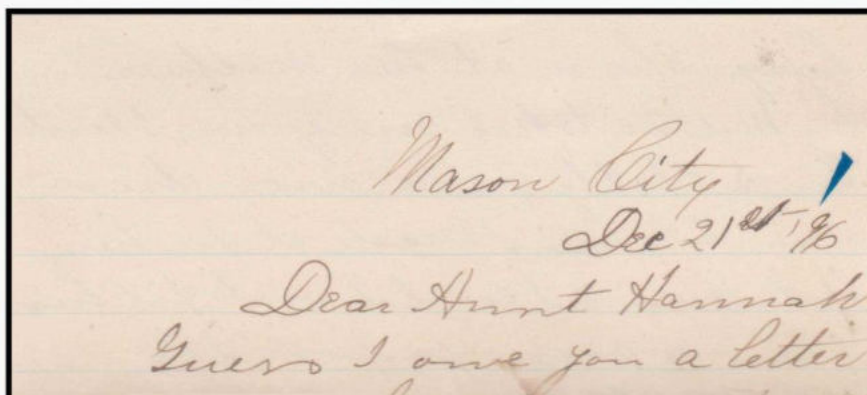 Mason City
Dec 21st, 96
Dear Aunt Hannah
Guess I owe you a letter